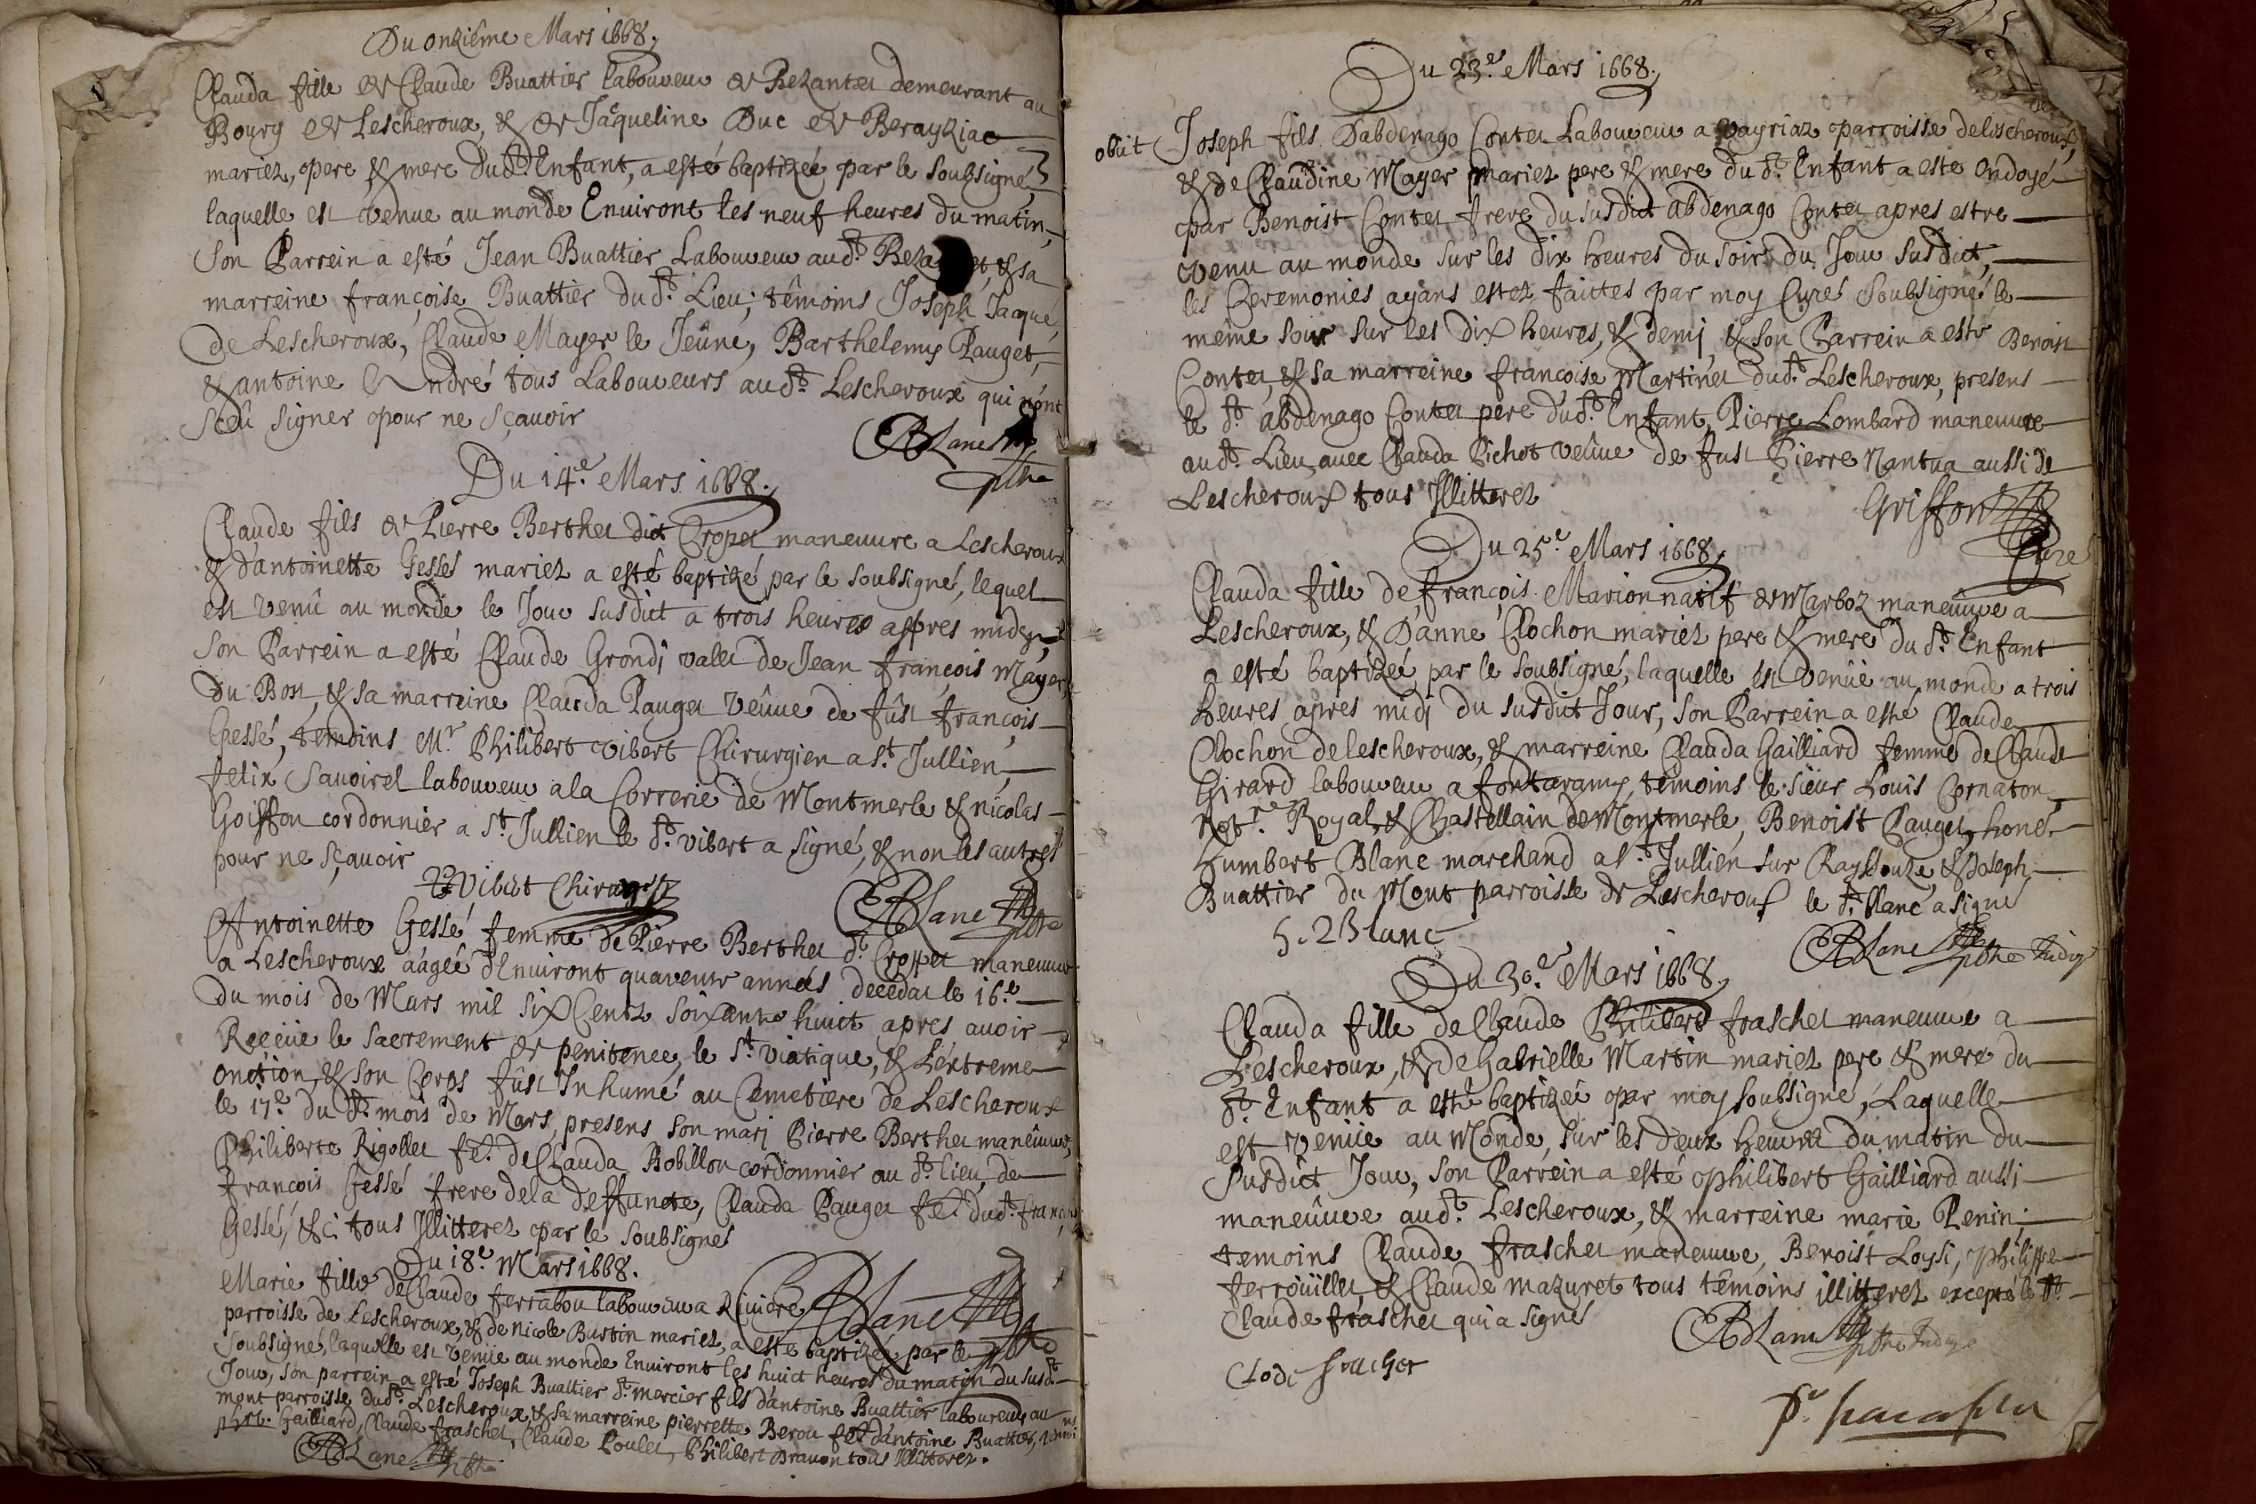 Du onziême Mars 1668.
Clauda fille de Claude Buattier laboureur de Bezantet demeurant au
Bourg de Lescheroux, & de Jaqueline Duc de Berayziac
mariez, pere & mere dudt. Enfant, a esté baptizée par le soubsigné
laquelle est venue au monde Enuiront les neuf heures du matin,
Son Parrein a esté Jean Buattier Laboureur audt. Beza et, & sa
marreine françoise Buattier dudt. Lieu; têmoins Joseph Jaquê,
de Lescheroux, Claude Mayer le Jeûne, Barthelemy Pauget,
& antoine André tous Laboureurs audt. Lescheroux qui n'ont
sceû signer pour ne sçauoir
Blanc ptbre
Du 14.e Mars 1668.
Claude fils de Pierre Berthet dict Cropet maneuure a Lescheroux
& d'antoinette Gessé mariez a esté baptizé par le soubsigné, lequel
est venû au monde le Jour susdict a trois heures apres midy,
Son Parrein a esté Claude Grondj valet de Jean françois Mayer
du Bost, & sa marreine Clauda Pauget veûue de fûst françois
Gessé, temoins Mr. Philibert Vibert Chirurgien a St. Jullien,
felix Sauoirel laboureur a la Correrie de Montmerle & nicolas
Goiffon cordonnier a St. Jullien le dt. vibert a signé, & non les autres
pour ne sçauoir
Vibert Chirurg
Blanc ptbre
Antoinette Gessé femme de Pierre Berthet dt. Croppet maneuure
a Lescheroux aâgée d'Enuiront quarente années decedat le 16.e
du mois de Mars mil six Centz soixante huict apres auoir
Receüe le sacrement de penitence, le St. viatique, & L'extreme
onction, & son Corps fûst Inhumé au Cemetiere de Lescheroux
le 17.e dudt. mois de Mars, presens son marj Pierre Berthet maneûure,
Philiberte Rigollet fe. de Clauda Robillon cordonnier au dt. lieu, de
françois Gessé frere de la deffuncte, Clauda Pauget fe. dudt. françois
Gessé, &c. tous Illitterez par le soubsignés
Du 18.e Mars 1668.
Marie fille de Claude ferrabou laboureur a Riuiere
parroisse de Lescheroux, & de nicole Burtin mariez, a esté baptizée par le
soubsigné, laquelle est venüe au monde Enuiront les huict heures du matin du susdt.
Jour, son parrein a esté Joseph Buattier dt. mercier fils d'antoine Buattier laboureur au
mont parroisse dudt. Lescheroux, & sa marreine pierrette Berou fe. d'antoine Buattier,
Gailliard, Claude fraschet, Claude Poulet, Philibert Drauon tous Illitterez.
Blanc ptbre
Du 23.e Mars 1668.
obiit Joseph fils D'abdenago Contet Laboureur a vayriaz parroisse de lescheroux,
& de Claudine Mayer mariez pere & mere du dt. Enfant a esté ondoyé
par Benoist Contet frere du susdict abdenago Contet apres estre
venu au monde sur les dix heures du soir du Jour susdict,
les Ceremonies ayans estez faittes par moy Curé soubsigné le
même soir sur les dix heures, & demj, & son Parrein a esté Benoist
Contet, & sa marreine françoise Martinet dudt. Lescheroux, presens
le dt. abdenago Contet pere dudt. Enfant, Pierre Lombard maneuure
audt. Lieu, auec Clauda Pichot veûue de fust Pierre Nantua aussi de
Lescheroux tous Illitterez
Griffon
Curé
Du 25.e Mars 1668.
Clauda fille de françois Marion natif de Marboz maneûure a
Lescheroux, & D'anne Clochon mariez pere & mere du dt. Enfant
a esté baptizée par le soubsigné, laquelle est venüe au monde a trois
heures apres midj du susdict Jour, son Parrein a esté Claude
Clochon de lescheroux, & marreine Clauda Gailliard femme de Claude
Girard laboureur a fontaramy, têmoins le sieur Louis Cornaton
notre. Royal, & Chastellain de Montmerle, Benoist Pauget, honê.
Humbert Blanc marchand a St. Jullien sur Rayssouze, & Joseph
Buattier du Mont parroisse de Lescheroux le dt. blanc a signé
h. Blanc
Blanc ptbre Indig
Du 30.e Mars 1668.
Clauda fille de Claude Philibert fraschet maneuure a
Lescheroux, & de Gabrielle Martin mariez pere & mere du
dt. Enfant a esté baptizée par moy soubsigné, Laquelle
est venüe au Monde, sur les deux heures du matin du
susdict Jour, son Parrein a esté philibert Gailliard aussi
maneûure audt. Lescheroux, & marreine marie Penin;
temoins Claude fraschet maneuure, Benoist Loysi, philippe
ferroüillet, & Claude mazuret tous têmoins illitterez excepté le dt.
Claude fraschet qui a signé
Blanc ptbre Indig
Clode frachet
pr. paraphe